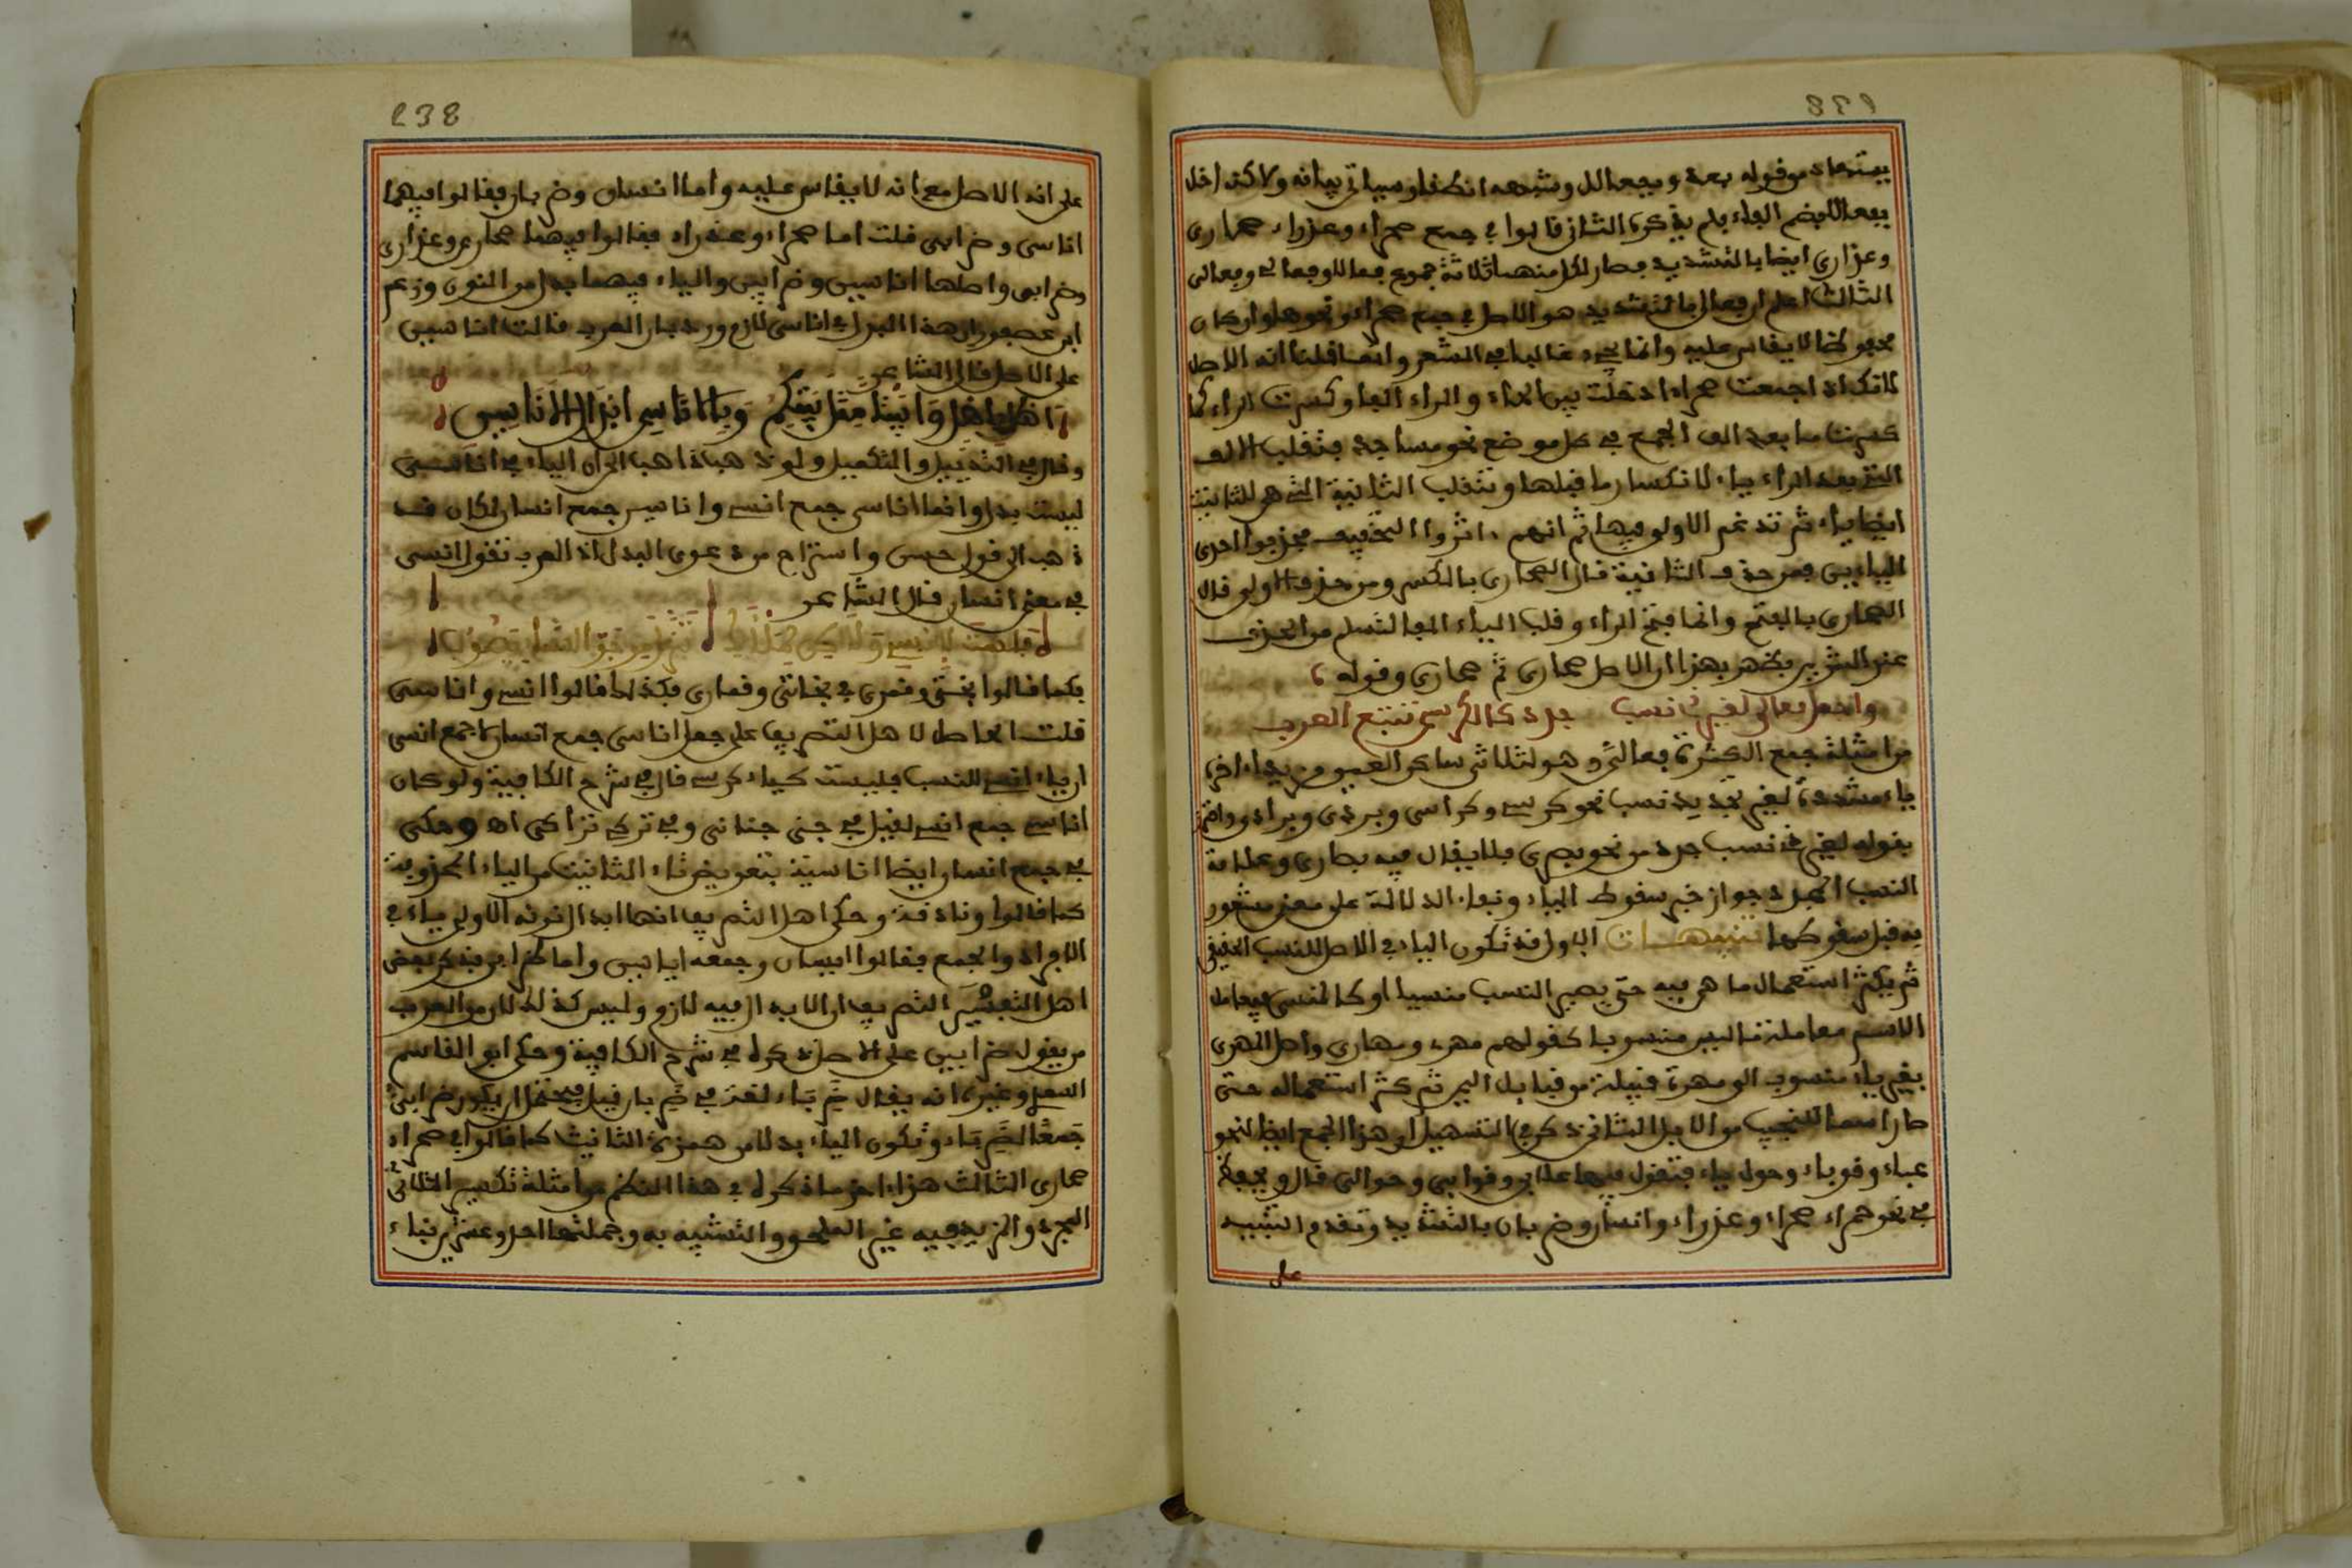 يستفاد من قوله بعد وبفعالل وشبهه انطقا وسياتي بيانه ولاكن اخل
بفعالل بضم الفاء فلم يذكره الثاني قالوا في جمع صحراء وعذراء صحاري
وعذاري ايضا بالتشديد فصار لكل منهما ثلاثة جموع فعالل وفعالي وفعالى
الثالث اعلم ان فعالي بالتشديد هو الاصل في جمع صحراء ونحوها وان كان
محفوظا لا يقاس عليه وانما يجيء غالبا في الشعر وانما قلنا انه الاصل
لانك اذا جمعت صحراء ادخلت بين الحاء والراء الفا وكسرت الراء كما
كسرت ما بعد الف الجمع في كل موضع نحو مساجد فتنقلب الالف
التي بعد الراء ياء لانكسار ما قبلها وتنقلب الثانية التي هي للتانيث
ايضا ياء ثم تدغم الاولى فيها ثم انهم اثروا التخفيف فحذفوا احدى
الياءين فمن حذف الثانية قال الصحاري بالكسر ومن حذف الاولى قال
الصحارى بالفتح وانما فتح الراء وقلب الياء الفا لتسلم من الحذف
عند التنوين فظهر بهذا ان الاصل صحاري ثم صحارى وقوله
واجعل فعالي لغير ذي نسب جدد كالكرسي تتبع العرب
من امثلة جمع الكثرة فعالي وهو لثلاثي ساكن العين مزيد اخره
ياء مشددة لغير تجديد نسب نحو كرسي وكراسي وبردي وبرادي واحترز
بقوله لغير ذي نسب جدد من نحو بصري فلا يقال فيه بصاري وعلامة
النسب المجدد جواز سقوط الياء وبقاء الدلالة على معنى مشعور
به قبل سقوطها تنبيهات الاول قد تكون الياء في الاصل للنسب الحقيقي
ثم يكثر استعمال ما هي فيه حتى يصير النسب منسيا او كالمنسي فيعامل
الاسم معاملة ما ليس منسوبا كقولهم مهري ومهاري واصل المهري
بغير ياء منسوب الى مهرة قبيلة من قبائل اليمن ثم كثر استعماله حتى
صار اسما للنجيب من الابل الثاني ذكر في التسهيل ان هذا الجمع ايضا لنحو
علباء وقوباء وحولايا فتقول فيها علابي وقوابي وحوالي قال ويحفظ
في نحو صحراء وعذراء وانسان وضربان بالتشديد وتقدم التنبيه
على
238
على انه الاصل مع انه لا يقاس عليه واما انسان وضربان فقالوا فيهما
اناسي وضرابي قلت اما صحراء وعذراء فقالوا فيهما صحاري وعذاري
وضرابي واصلها اناسين وضرابين والياء فيهما بدل من النون وزعم
ابن عصفور ان هذا البدل في اناسي لازم ورد بان العرب قالت اناسين
على الاصل قال الشاعر
وبالاناسي ابدال الاناسين
وقال في التذييل والتكميل ولو ذهب ذاهب الى ان الياء في اناسي
ليست بدلا وانما اناسي جمع انسي واناسين جمع انسان لكان قد
ذهب الى قول حسن واستراح من دعوى البدل اذ العرب تقول انسي
في معنى انسان قال الشاعر
فلست لانسي ولكن لملأك تنزل من جو السماء يصوب
فكما قالوا بختي وقمري في بخاتي وقماري فكذلك قالوا انسي واناسي
قلت الحاصل لاهل التصريف على جعل اناسي جمع انسان لا جمع انسي
ان ياء انسي للنسب فليست كياء كرسي قال في شرح الكافية ولو كان
اناسي جمع انسي لقيل في جني جناني وفي تركي تراكي اه وحكي
في جمع انسان ايضا اناسية بتعويض تاء التانيث من الياء المحذوفة
كما قالوا زنادقة وحكى اهل التصريف انها ابدال نونه الاولى ياء في
الافراد والجمع فقالوا ايسان وجمعه اياسين واما ظرابي فذكر بعض
اهل التصريف ان الابدال فيه لازم وليس كذلك لان من العرب
من يقول ضرابين على الاصل ذكره في شرح الكافية وحكى ابو القاسم
السعدي وغيره انه يقال ضرباء لغة في ضربان فيحتمل ان يكون ضرابي
جمعا لضرباء وتكون الياء بدلا من همزة التانيث كما قالوا في صحراء
صحاري الثالث هذا اخر ما ذكره في هذا النظم من امثلة تكسير الثلاثي
المجرد والمزيد فيه غير الملحق والشبيه به وجملتها احد وعشرون بناء